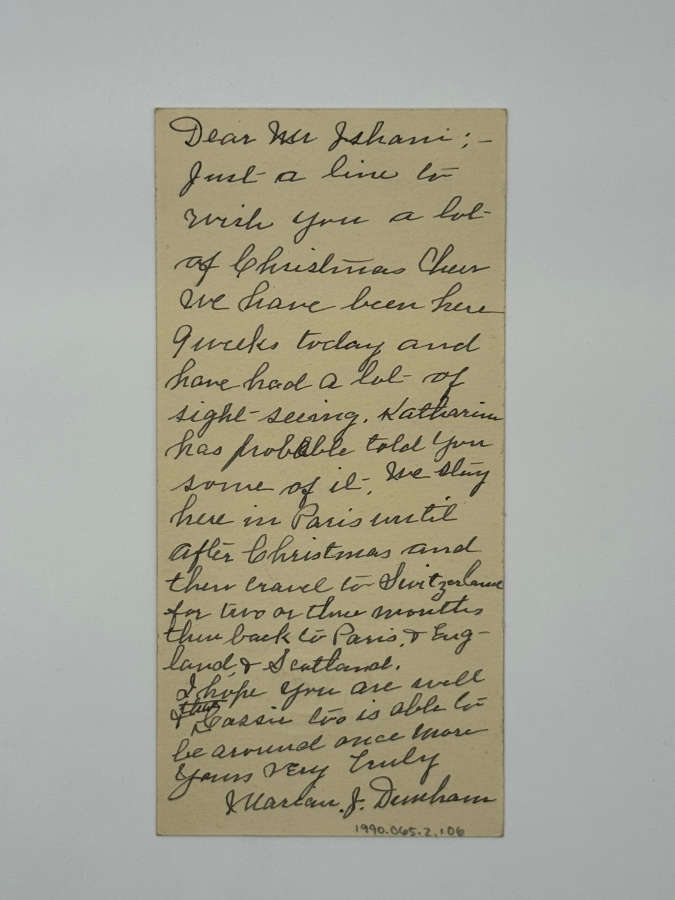 Dear Mr Ishani;-
Just a line to
wish you a lot
of Christmas Cheer
We have been here
9 weeks today and
have had a lot of
sight-seeing. Katharine
has probable told you
some of it. We stay
here in Paris until
after Christmas and
then travel to Switzerland
for two or three months
then back to Paris, & Eng-
land, & Scotland.
I hope you are well
& that Cassie too is able to
be around once more
Yours Very Truly
Marian. J. Dunham
1990.065.2.106